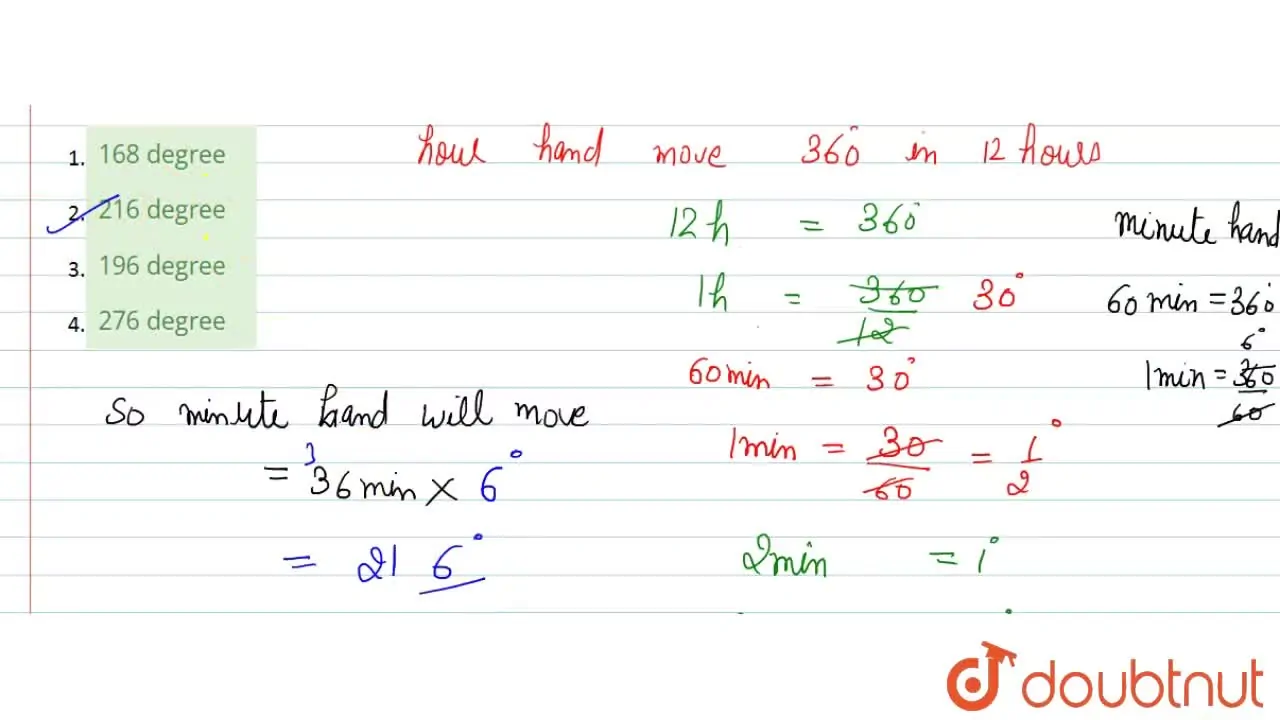 1. 168 degree
2. 216 degree
3. 196 degree
4. 276 degree
hour hand move 360° in 12 hours
12h = 360°
1h = 360/12 30°
60 min = 30°
1 min = 30/60 = 1/2°
2 min = 1°
minute hand
60 min = 360°
6°
1 min = 360/60
So minute hand will move
3
= 36 min × 6°
= 216°
doubtnut